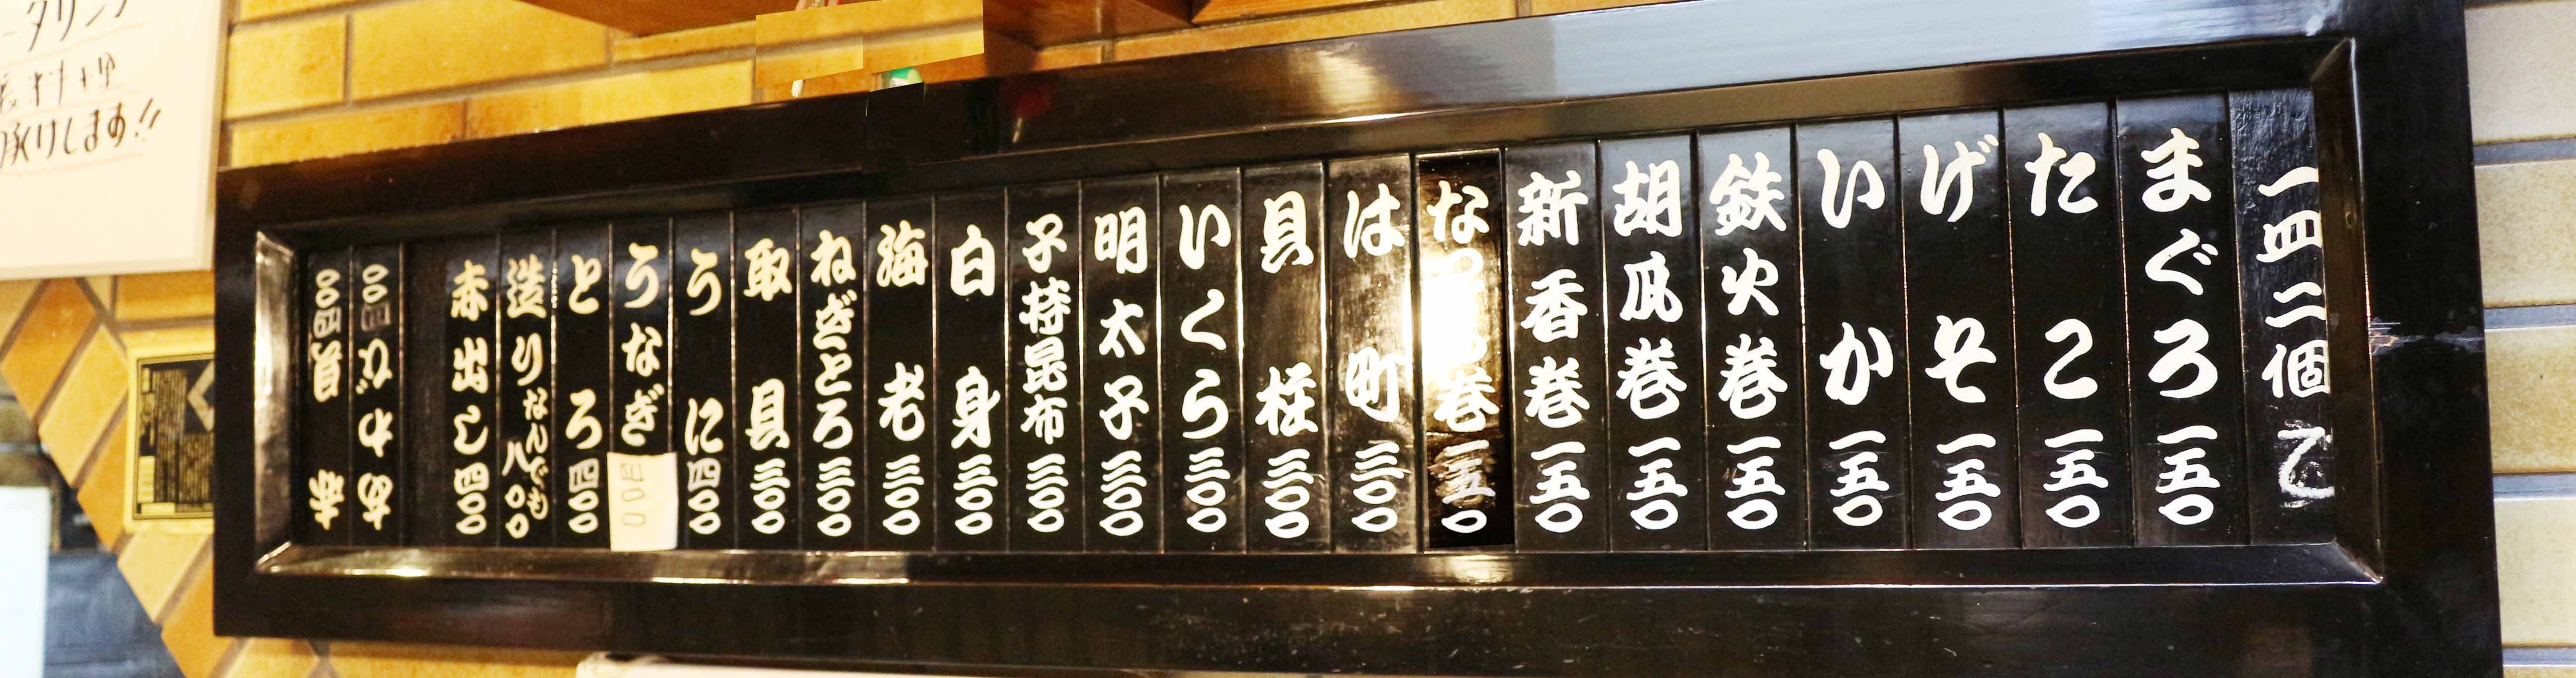 一皿二個で
まぐろ一五〇
たこ一五〇
げそ一五〇
いか一五〇
鉄火巻一五〇
胡瓜巻一五〇
新香巻一五〇
巻一五〇
は町三〇〇
貝柱三〇〇
いくら三〇〇
明太子三〇〇
子持昆布三〇〇
白身三〇〇
海老三〇〇
ねぎとろ三〇〇
取貝三〇〇
うに四〇〇
うなぎ四〇〇
とろ四〇〇
造りなんでも八〇〇
赤出し四〇〇
あわび四〇〇
赤貝四〇〇
料理
承けします!!